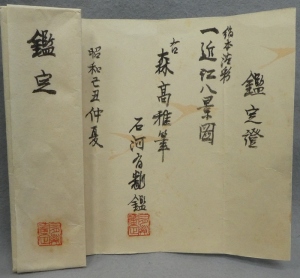 鑑定證
絹本淡彩
一近江八景圖
古
森高雅筆
石河有粼鑑
昭和己丑仲夏
鑑定